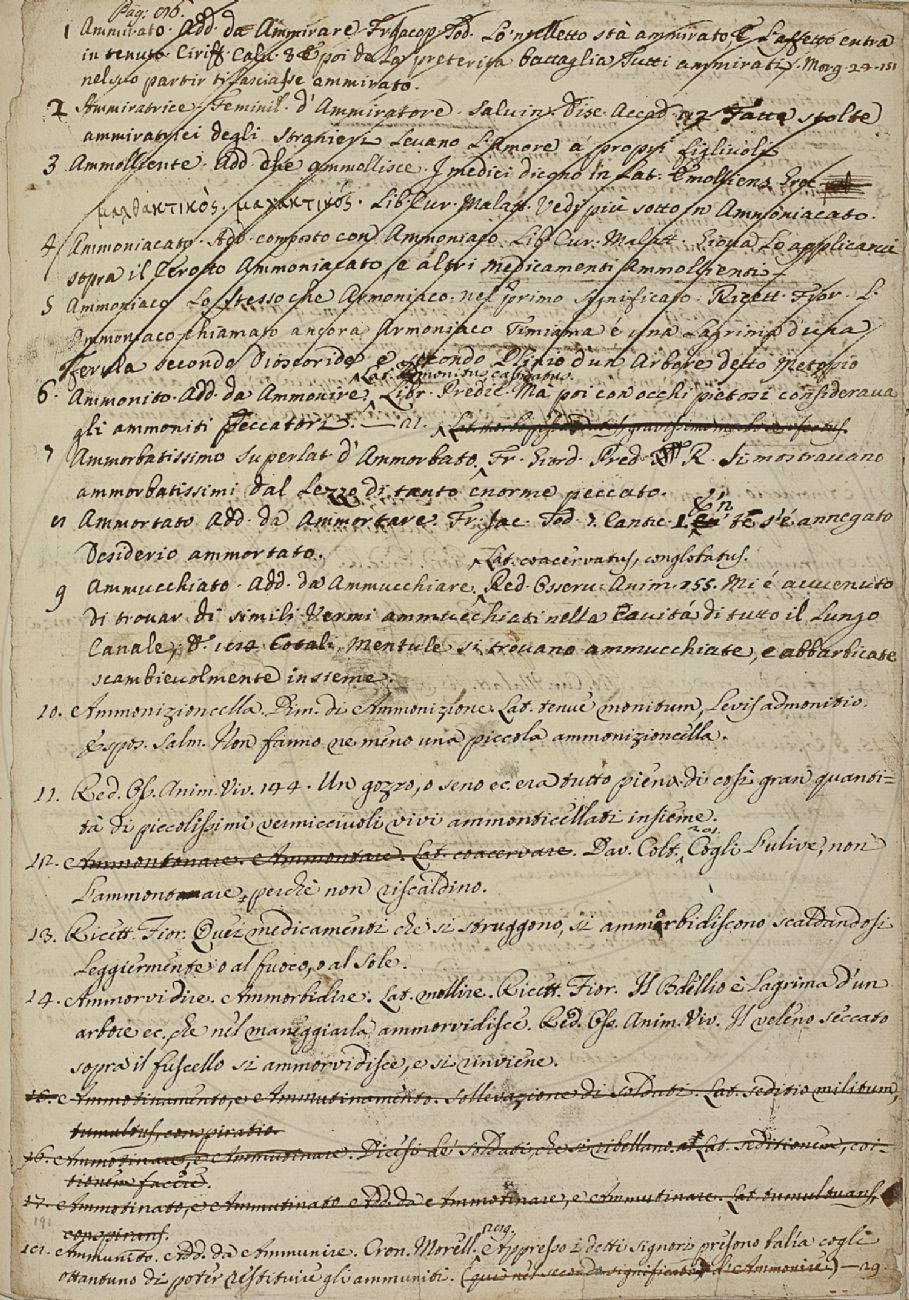 Pag: 
1 Ammirato. Add. da Ammirare Fr. Jacop. Tod. Lo 'ntelletto stà ammirato, E l'affetto entra
in tenuta Ciriff. Calu. E poi de la preterita battaglia Tutti ammirati. Morg. 24. 151
nel suo partir ti lasciasse ammirato.
2 Ammiratrice. Feminil. d'Ammiratore. Saluin. Disc. Accad. Fatte stolte
ammiratrici degli stranieri Levano L'Amore a propri figliuoli
3 Ammolliente. Add. che ammollisce. I medici dicono in Lat. Emolliens Grot.
μαλθακτικὸς, μαλακτικός. Lib. Cur. Malatt. Vedi più sotto in Ammoniacato.
4 Ammoniacato. Add. composto con Ammoniaco. Lib. Cur. Malatt. Gioua Lo applicarui
sopra il Cerotto Ammoniacato e altri medicamenti Ammollienti
5 Ammoniaco Lo stesso che Armoniaco. nel primo significato. Ricett. Fior. L.
Ammoniaco chiamato ancora Armoniaco Timiama è una Lagrima d'una
Ferula secondo Dioscoride, e secondo Plinio d'un Arbore detto Metopio
Lat. admonitus, castigatus.
6. Ammonito. Add. da Ammonire, Libr. Predic. Ma poi con occhi pietosi considerava
gli ammoniti peccatori. 21.
7 Ammorbatissimo Superlat. d'Ammorbato, Fr. Giord. Pred. R. Si mostravano
ammorbatissimi dal Lezzo di tanto enorme peccato.
8 Ammortato Add. da Ammortare. Fr. Jac. Tod. Cantic. 1. En te s'è annegato
Desiderio ammortato.
Lat. coacervatus, conglobatus.
9 Ammucchiato. Add. da Ammucchiare, Red. Osserv. Anim. 155. Mi é avvenuto
di trovar di simili Vermi ammucchiati nella Cavitá di tutto il Lungo
Canale, & 184 Cotali Mentule si trovano ammucchiate, e abbarbicate
scambievolmente insieme.
10. Ammonizioncella. Dim. di Ammonizione. Lat. tenue monitum, Levis admonitio.
Espos. Salm. Non fanno ne meno una piccola ammonizioncella.
11. Red. Oss. Anim. Viv. 144. Un gozzo, o seno ec. era tutto pieno di così gran quanti=
tà di piccolissimi vermicciuoli vivi ammonticellati insieme.
12. Ammontonare. e Ammontare. Lat. coacervare. Dav. Colt. 201. Cogli l'ulive, non
l'ammontonare, perchè non riscaldino.
13. Ricett. Fior. Quei medicamenti che si struggono, si ammorbidiscono scaldandosi
Leggiermente o al fuoco, o al Sole.
14. Ammorvidire. e Ammorbidire. Lat. mollire. Ricett. Fior. Il Bdellio è Lagrima d'un
arbore ec. che nel maneggiarla ammorvidisce. Red. Oss. Anim. Viv. Il veleno seccato
sopra il fuscello si ammorvidisce, e si rinviene.
15. Ammotinamento, e Ammutinamento. Sollevazione di Soldati. Lat. seditio militum,
tumultus, conspiratio.
16. Ammotinare, e Ammutinare. Dicesi de' Soldati, che si ribellano. Lat. seditionem, coi-
tionem facere.
17. Ammotinato, e Ammutinato Add. da Ammotinare, e Ammutinare. Lat. tumultuans,
conspirans.
191
18. Ammunito. Add. da Ammunire. Cron. Morell. Appresso i detti Signori presono balía cogli
ottantuno di poter restituire gli ammuniti. (qui nel secondo significato d'Ammonire) — 29